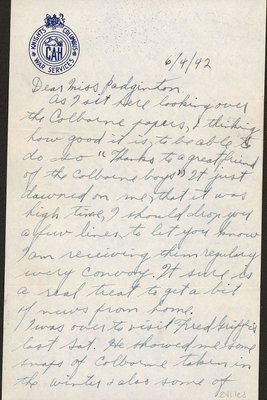 KNIGHTS OF COLUMBUS
CAH
WAR SERVICES
6/4/42
Dear Miss Padginton
As I sit here looking over
the Colborne papers, & thinking
how good it is, to be able to
do so "Thanks to a great friend
of the Colborne boys" It just
dawned on me, that it was
high time, I should drop you
a few lines to let you know
I am receiving them regulary
every convoy. It sure is
a real treat to get a bit
of news from home.
I was over to visit Fred Griffis
last Sat. He showed me some
snaps of Colborne taken in
the winter & also some of